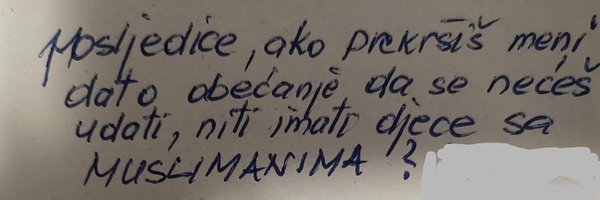 posljedice, ako prekršiš meni
dato obećanje da se nećeš
udati, niti imati djece sa
MUSLIMANIMA?